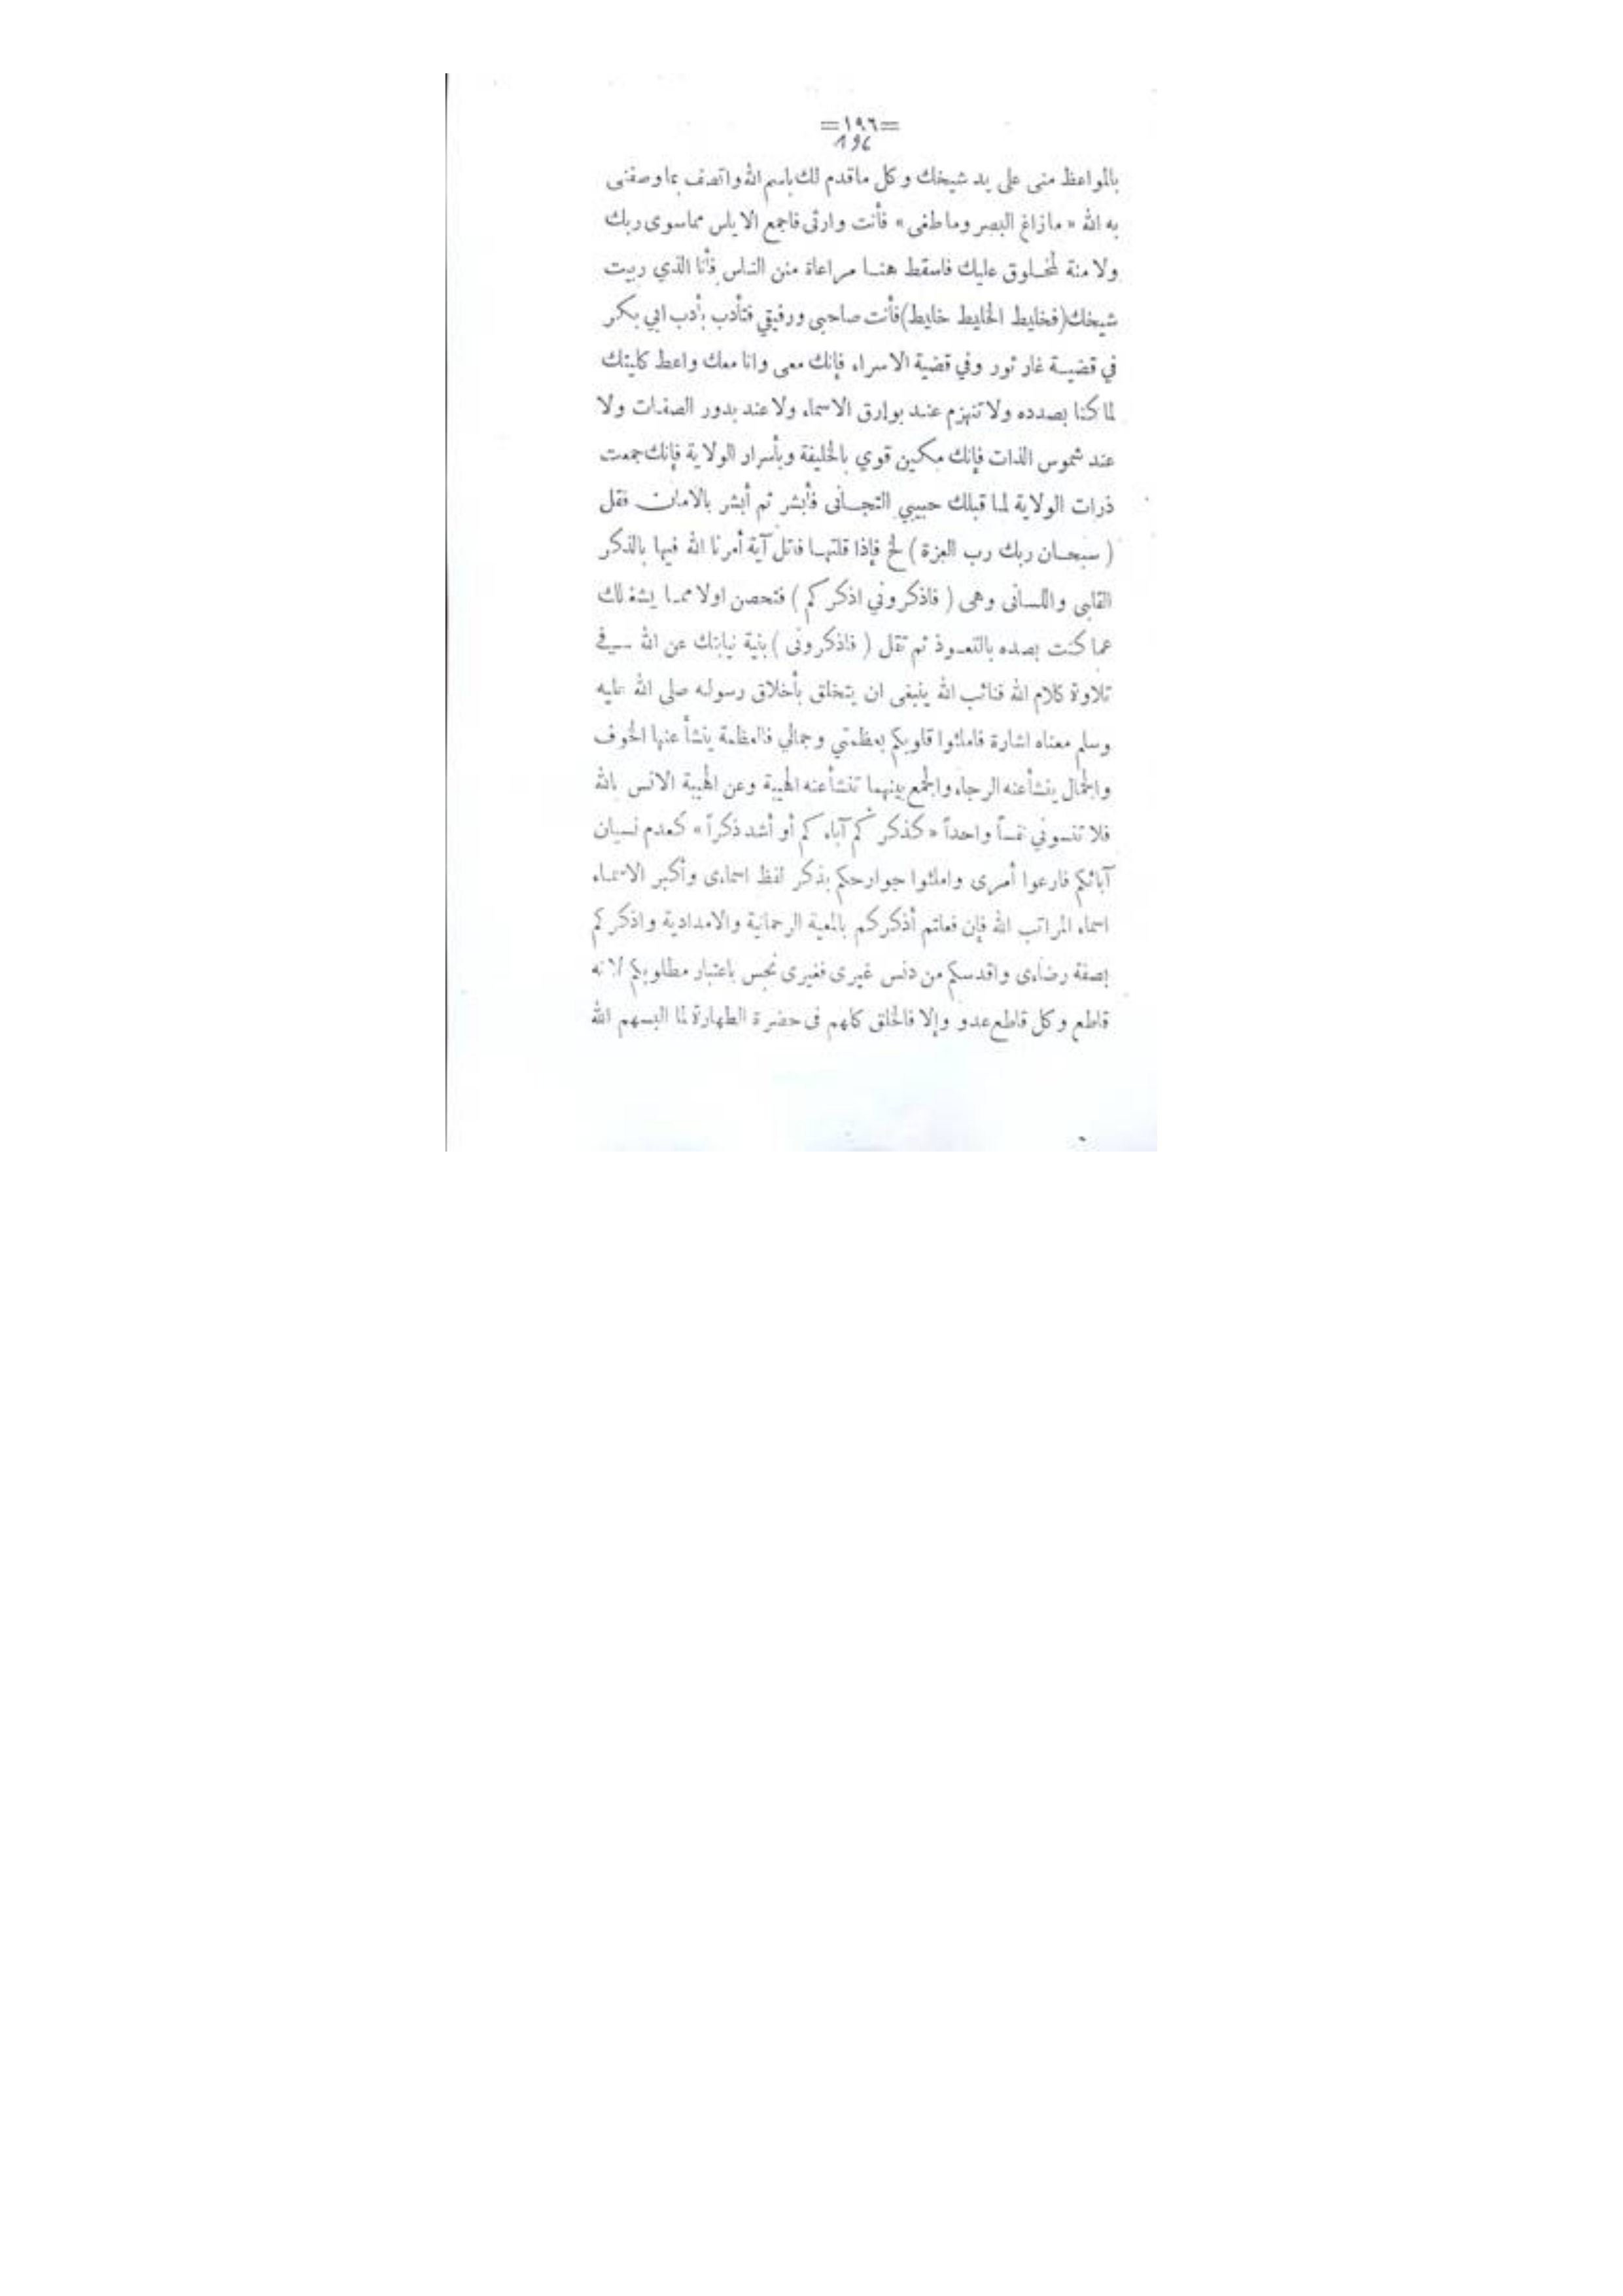 =١٩٦=
196
بالمواعظ منى على يد شيخك وكل ماقدم لك باسم الله واتصف بما وصفنى
به الله « مازاغ البصر وماطغى » فأنت وارثى فاجمع الاياس مماسوى ربك
ولا منة لمخلوق عليك فاسقط هنا مراعاة منن الناس فأنا الذي ربيت
شيخك (فخليط الخليط خليط) فأنت صاحبى ورفيقي فتأدب بأدب ابي بكر
في قضية غار ثور وفي قضية الاسراء فإنك معى وانا معك واعط كليتك
لما كنا بصدده ولا تنهزم عند بوارق الاسماء ولا عند بدور الصفات ولا
عند شموس الذات فإنك مكين قوي بالخليفة وبأسرار الولاية فإنك جمعت
ذرات الولاية لما قبلك حبيبي التجانى فأبشر ثم أبشر بالامان فقل
( سبحان ربك رب العزة ) لخ فإذا قلتها فاتل آية أمرنا الله فيها بالذكر
القلبى واللسانى وهى ( فاذكروني اذكركم ) فتحصن اولا مما يشغلك
عما كنت بصده بالتعوذ ثم تقل ( فاذكرونى ) بنية نيابتك عن الله في
تلاوة كلام الله فنائب الله ينبغى ان يتخلق بأخلاق رسوله صلى الله عليه
وسلم معناه اشارة فاملئوا قلوبكم بعظمتي وجمالي فالعظمة ينشأ عنها الخوف
والجمال ينشأ عنه الرجاء والجمع بينهما تنشأ عنه الهيبة وعن الهيبة الانس بالله
فلا تنسوني نفساً واحداً « كذكركم آباءكم أو أشد ذكراً » كعدم نسيان
آبائكم فارعوا أمرى واملئوا جوارحكم بذكر لفظ اسماءى وأكبر الاسماء
اسماء المراتب الله فإن فعلتم أذكركم بالمعية الرحمانية والامدادية واذكركم
بصفة رضاءى واقدسكم من دنس غيرى فغيرى نجس باعتبار مطلوبكم لانه
قاطع وكل قاطع عدو وإلا فالخلق كلهم فى حضرة الطهارة لما البسهم الله